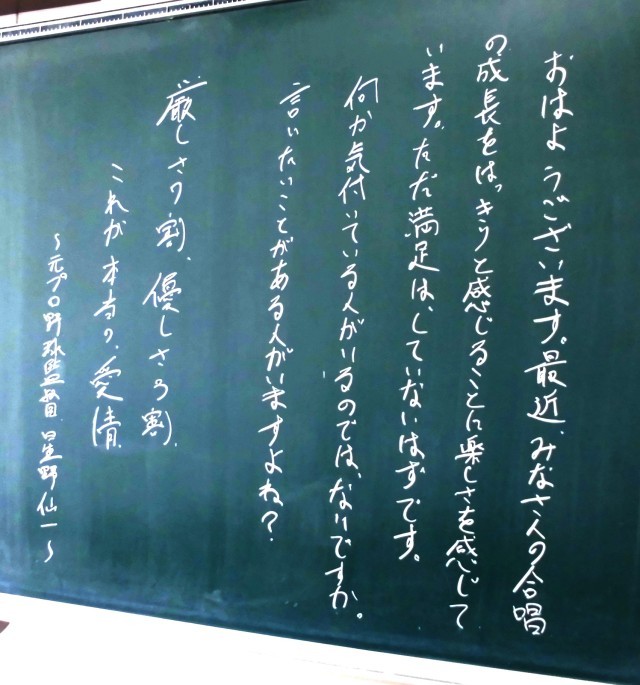 おはようございます。最近、みなさんの合唱
の成長をはっきりと感じることに楽しさを感じて
います。ただ満足は、していないはずです。
何か気付いている人がいるのでは、ないですか。
言いたいことがある人がいますよね?
厳しさ7割、優しさ3割、
これが本当の、愛情
〜元プロ野球監督 星野仙一〜